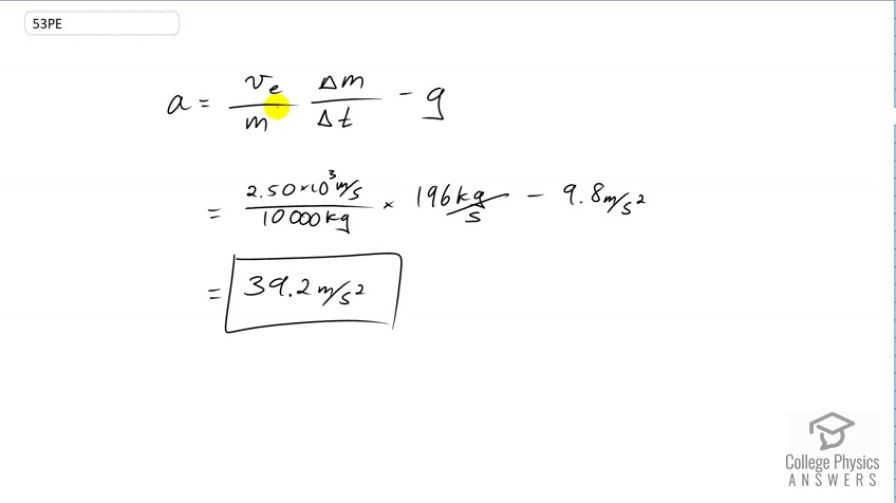 53PE
a = v_e/m Δm/Δt − g
= 2.50×10³ m/s / 10 000 kg × 196 kg/s − 9.8 m/s²
= 39.2 m/s²
College Physics
ANSWERS